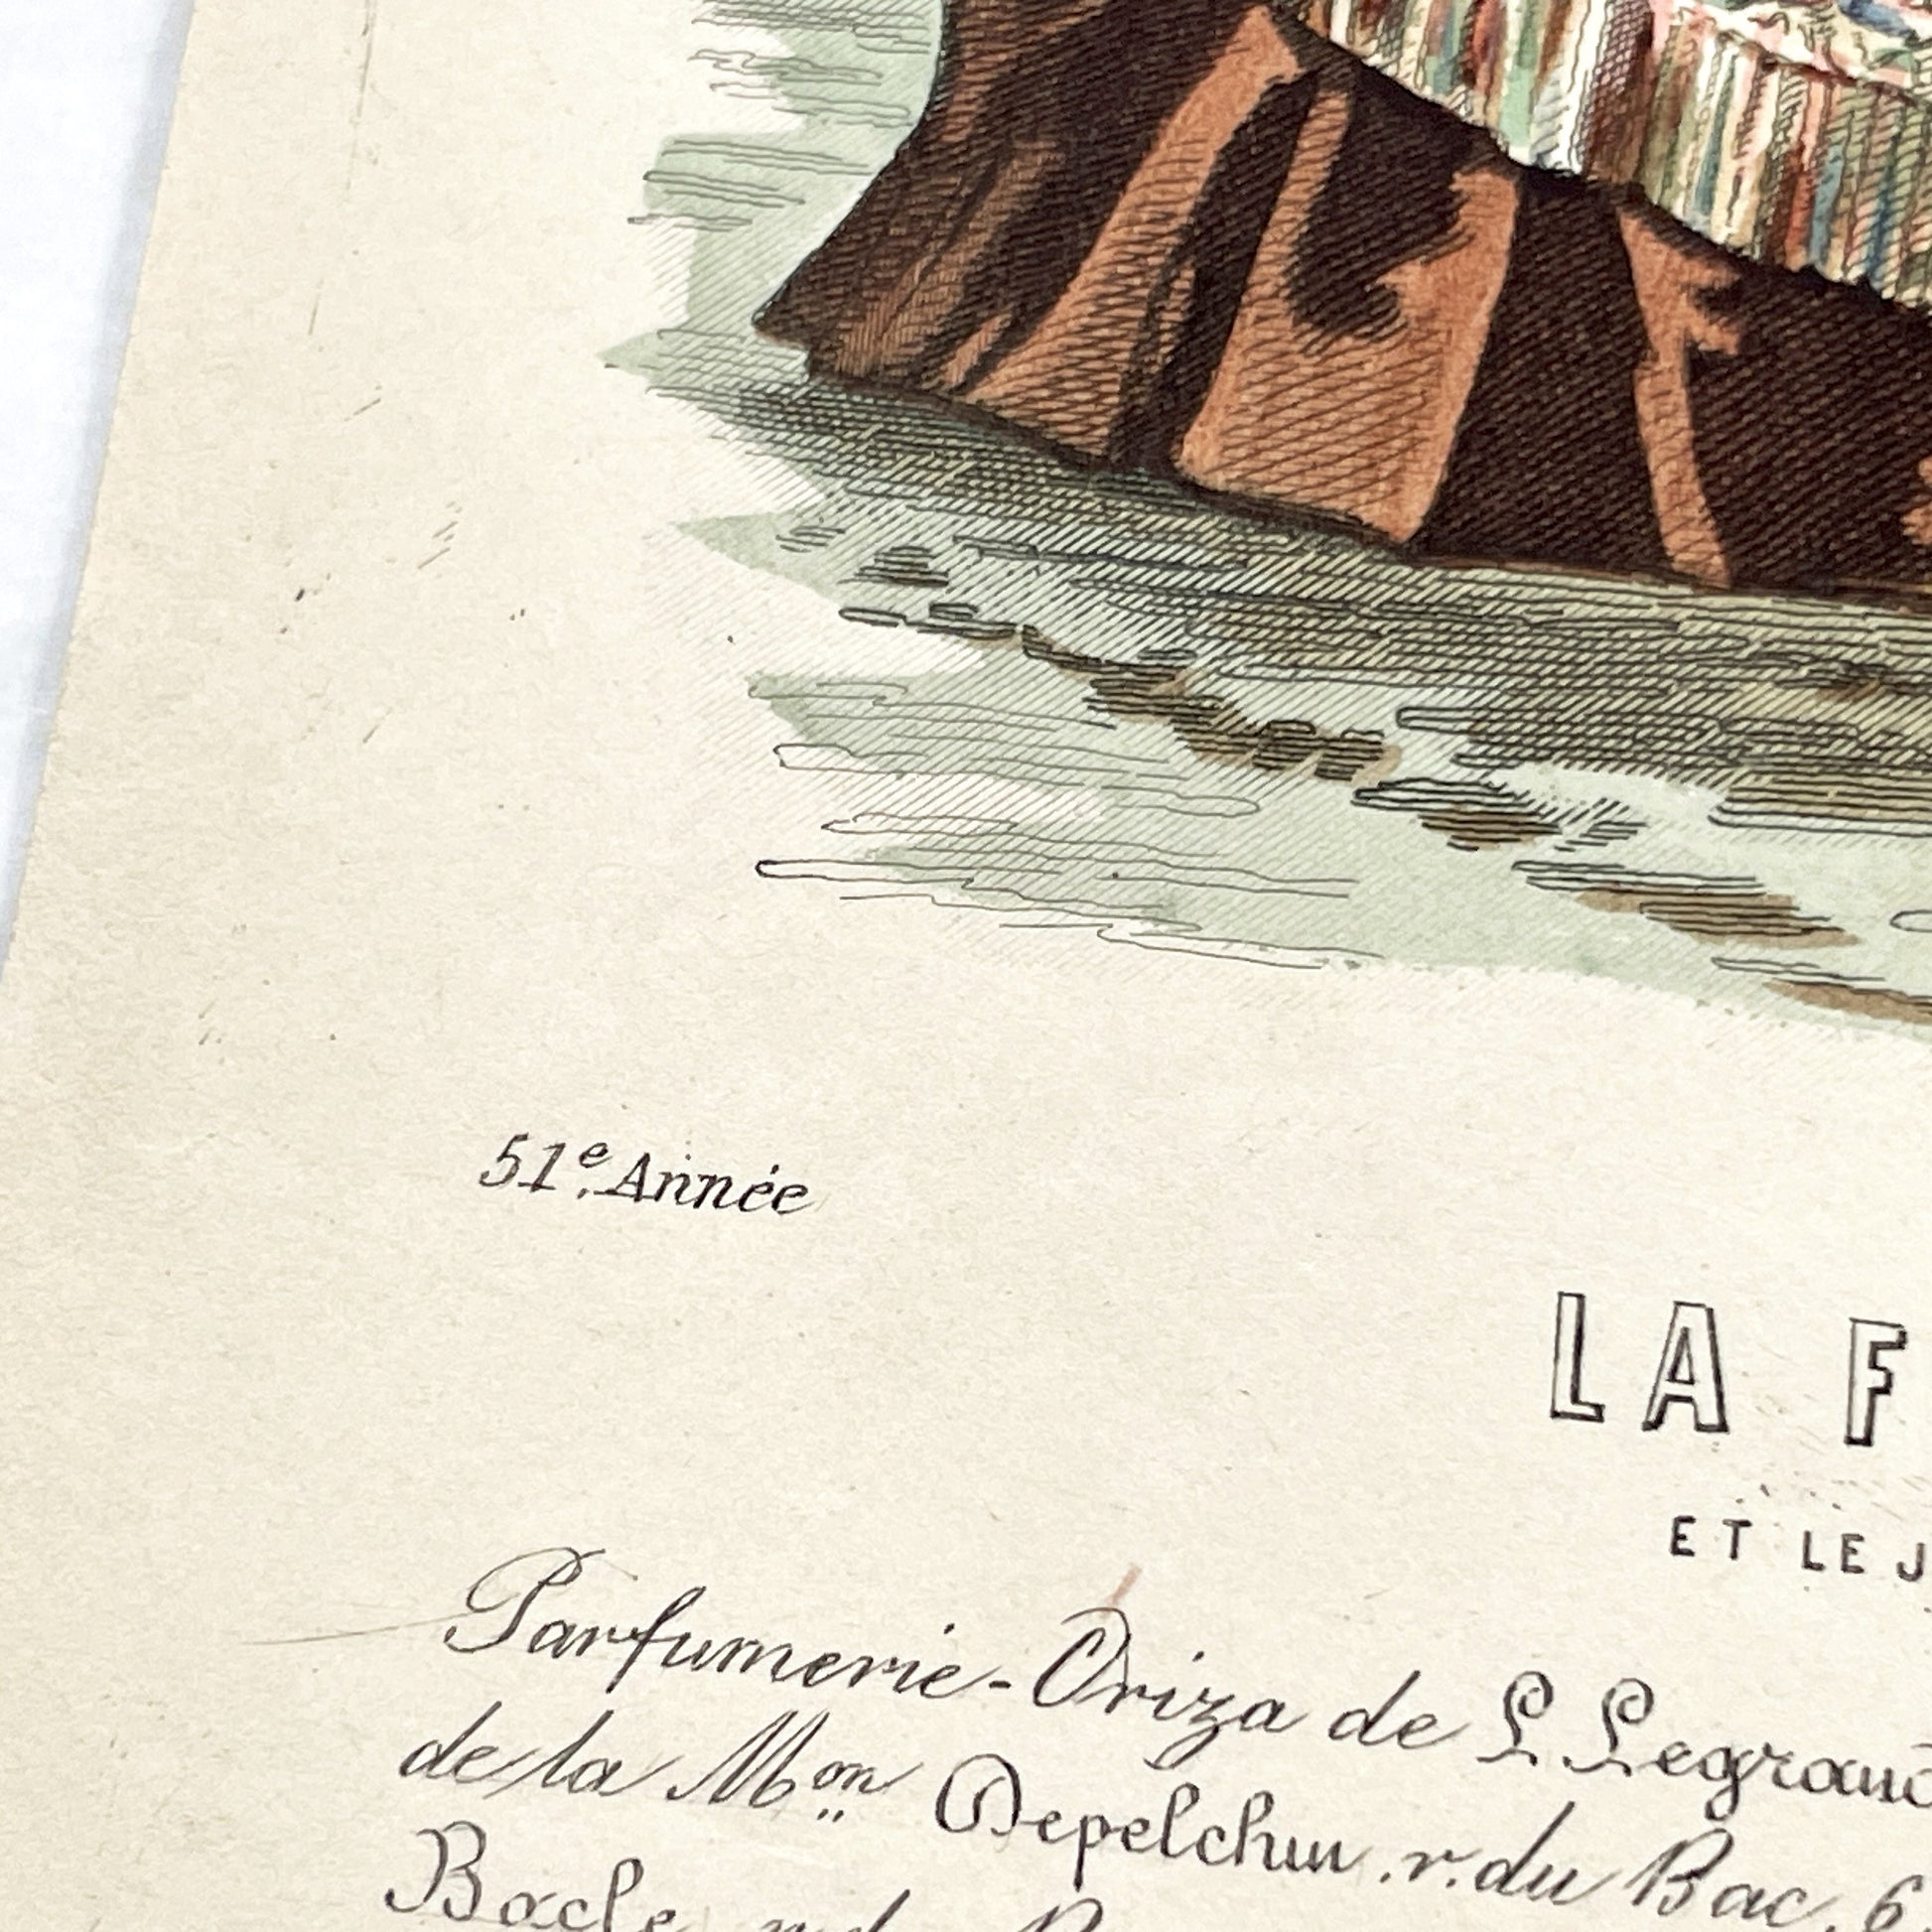 51e. Année
LA F
ET LE J
Parfumerie-Oriza de L. Legrand
de la Mon Depelchin . r. du Bac, 6
Bacle